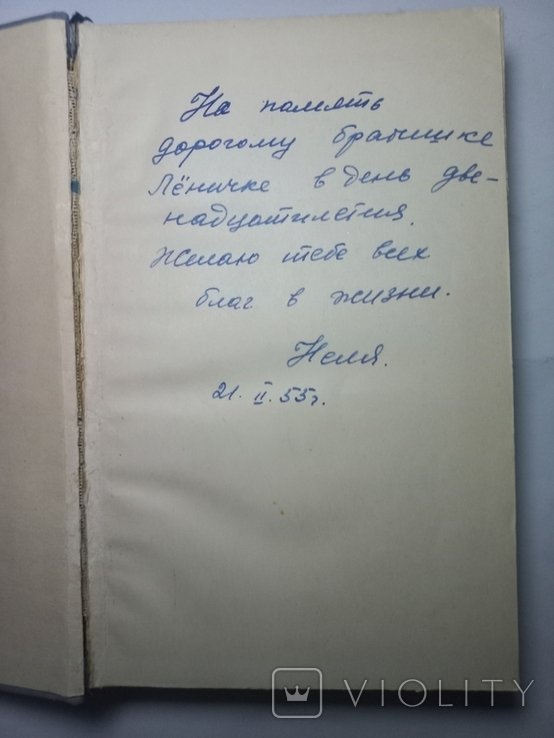 На память
дорогому братишке
Лёничке в день две-
надцатилетия.
Желаю тебе всех
благ в жизни.
Неля.
21. II. 55г.
VIOLITY